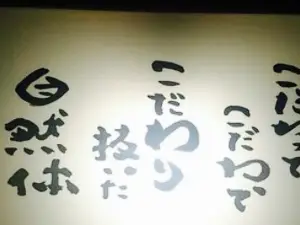 こだわって
こだわって
こだわり
技だ
自然体